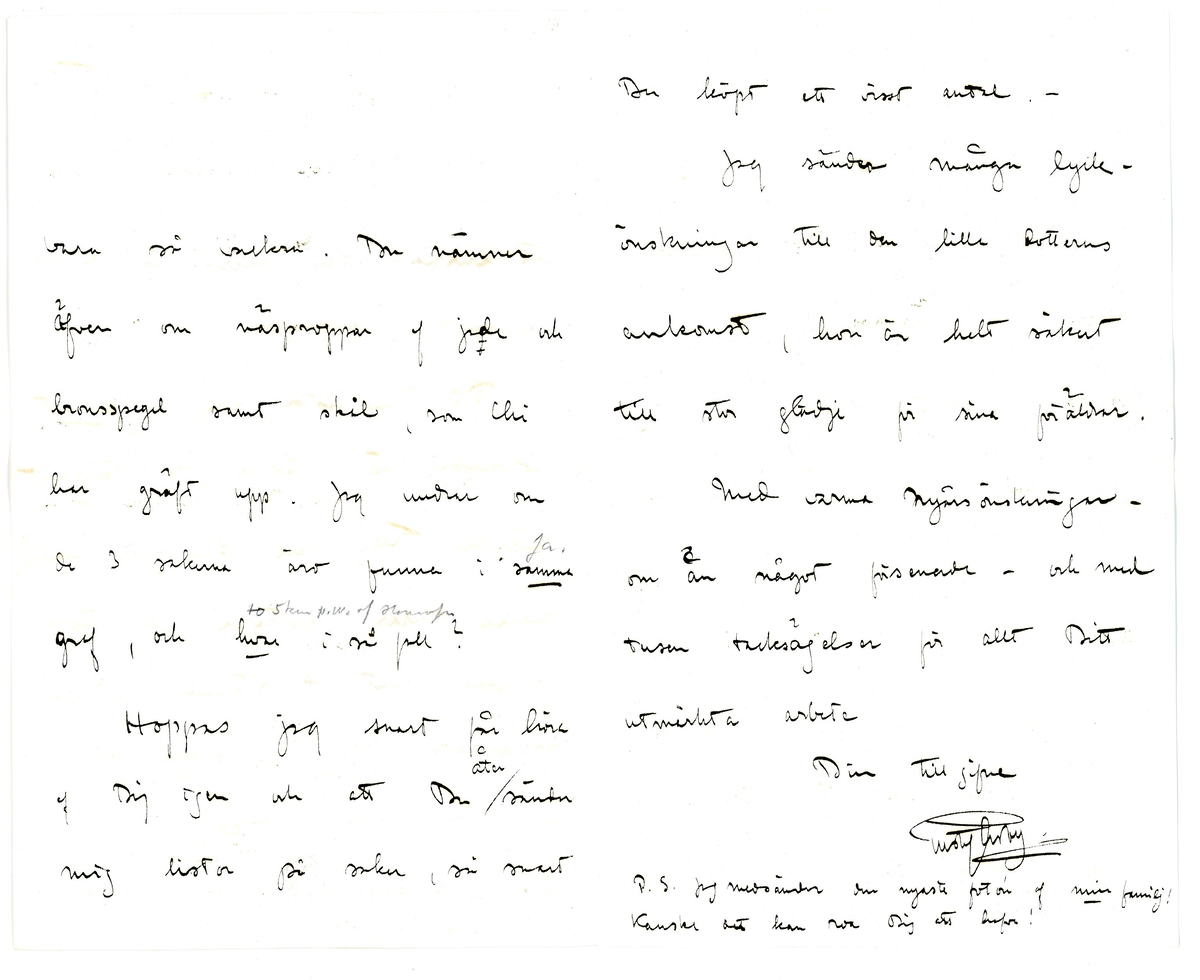 vara så vackra. Du nämner
äfven om näsproppar af jade och
bronsspegel samt skål, som Chi
har gräft upp. Jag undrar om
de 3 sakerna äro funna i samma
Ja.
graf, och hvar i så fall?
to 5 km p.w. of
Hoppas jag snart får höra
af Dig igen och att Du åter sänder
mig listor på saker, så snart
Du köpt ett visst antal. –
Jag sänder många lyck-
önskningar till den lilla dotterns
ankomst, hon är helt säkert
till stor glädje för sina föräldrar.
Med varma nyårsönskningar –
om än något försenade – och med
tusen tacksägelser för allt Ditt
utmärkta arbete
Din tillgifne
P. S. Jag medsänder den nyaste foton af min familj!
Kanske det kan roa Dig att